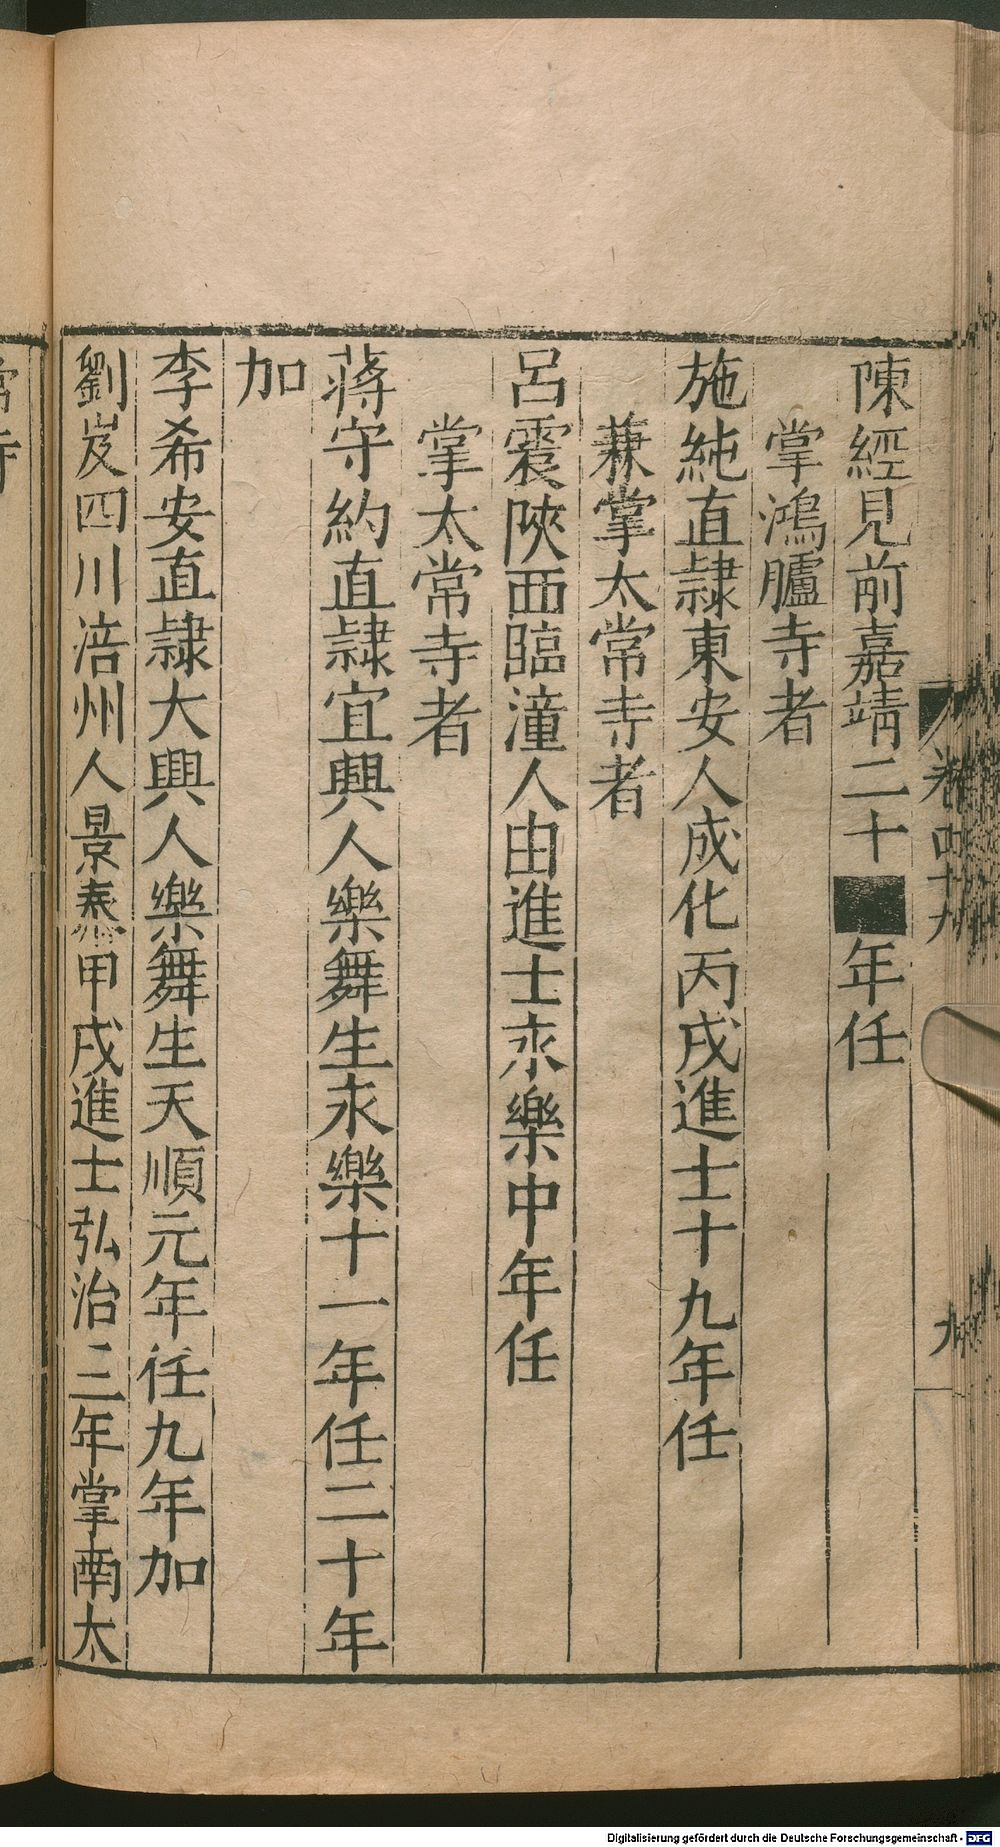 卷四十九
九
陳經見前嘉靖二十■年任
掌鴻臚寺者
施純直隷東安人成化丙戌進士十九年任
兼掌太常寺者
呂震陝西臨潼人由進士永樂中年任
掌太常寺者
蔣守約直隷宜興人樂舞生永樂十一年任二十年
加
李希安直隷大興人樂舞生天順元年任九年加
劉岌四川涪州人景泰甲戌進士弘治三年掌南太
常寺
Digitalisierung gefördert durch die Deutsche Forschungsgemeinschaft - DFG